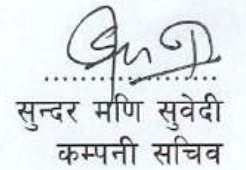 सुन्दर मणि सुवेदी
कम्पनी सचिव